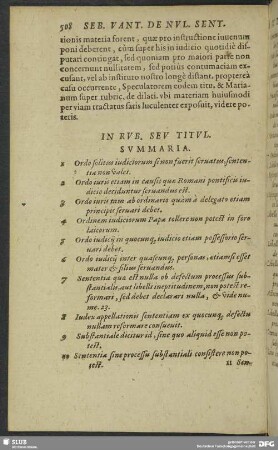 508 SEB. VANT. DE NVL. SENT.
tionis materia forent, quæ pro instructione iuuenum
poni deberent, cùm super his in iudicio quotidie dis-
putari contingat, sed quoniam pro maiori parte non
concernunt nullitatem, sed potiùs contumaciam ex-
cusant, vel ab instituto nostro longè distant, propterea
casu occurrente, Speculatorem eodem titu. & Maria-
num super rubric. de dilati. vbi materiam huiusmodi
per viam tractatus satis luculenter exposuit, videre po-
teris.
IN RVB. SEV TITVL.
SVMMARIA.
1 Ordo solitus iudiciorum si non fuerit seruatus, senten-
tia non valet.
2 Ordo iuris etiam in causis quæ Romani pontificis iu-
dicio deciduntur seruandus est.
3 Ordo iuris tam ab ordinario quàm à delegato etiam
principis seruari debet.
4 Ordinem iudiciorum Papa tollere non potest in foro
laicorum.
5 Ordo iudicij in quocunq, iudicio etiam possessorio ser-
uari debet.
6 Ordo iudicij inter quascunq, personas, etiamsi esset
mater & filius seruandum.
7 Sententia quæ est nulla ob defectum processus sub-
stantialis, aut libelli ineptitudinem, non potest re-
formari, sed debet declarari nulla, & vide nu-
me. 23.
8 Iudex appellationis sententiam ex quocunq, defectu
nullam reformare consueuit.
9 Substantiale dicitur id, sine quo aliquid esse non po-
test.
10 Sententia sine processu substantiali consistere non po-
test.
11 Sen-
SLUB
DFG